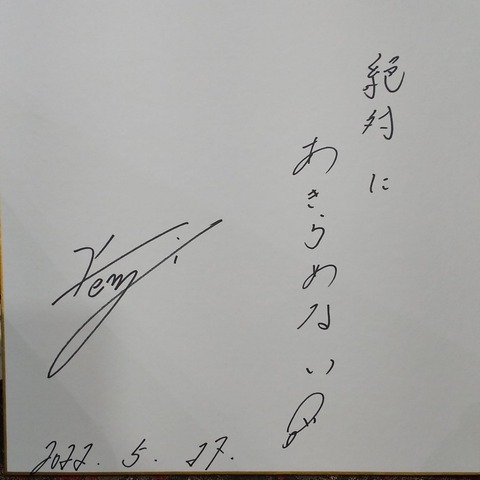 絶対に
あきらめない
Kenji
2022.5.27.